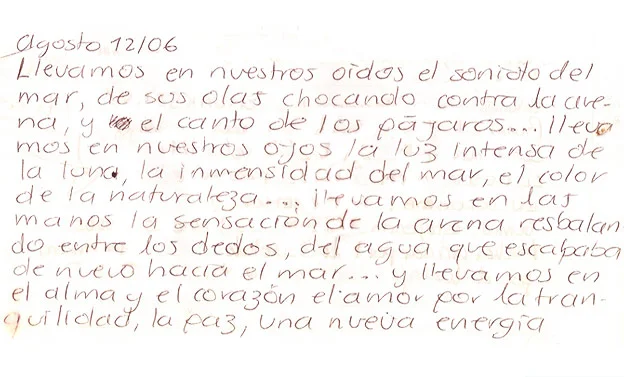 Agosto 12/06
Llevamos en nuestros oídos el sonido del
mar, de sus olas chocando contra la are-
na, y el canto de los pájaros... lleva
mos en nuestros ojos la luz intensa de
la luna, la inmensidad del mar, el color
de la naturaleza... llevamos en las
manos la sensación de la arena resbalan
do entre los dedos, del agua que escapaba
de nuevo hacia el mar... y llevamos en
el alma y el corazón el amor por la tran-
quilidad, la paz, una nueva energía